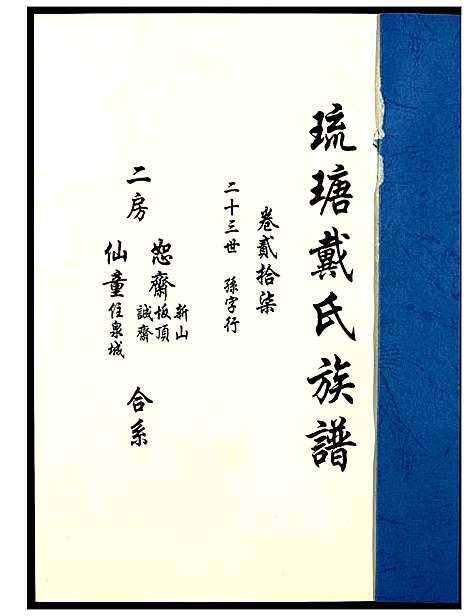 琉瑭戴氏族譜
卷貳拾柒
二十三世 孫字行
新山
恕齋坂頂
誠齋
二房 合系
仙童住泉城